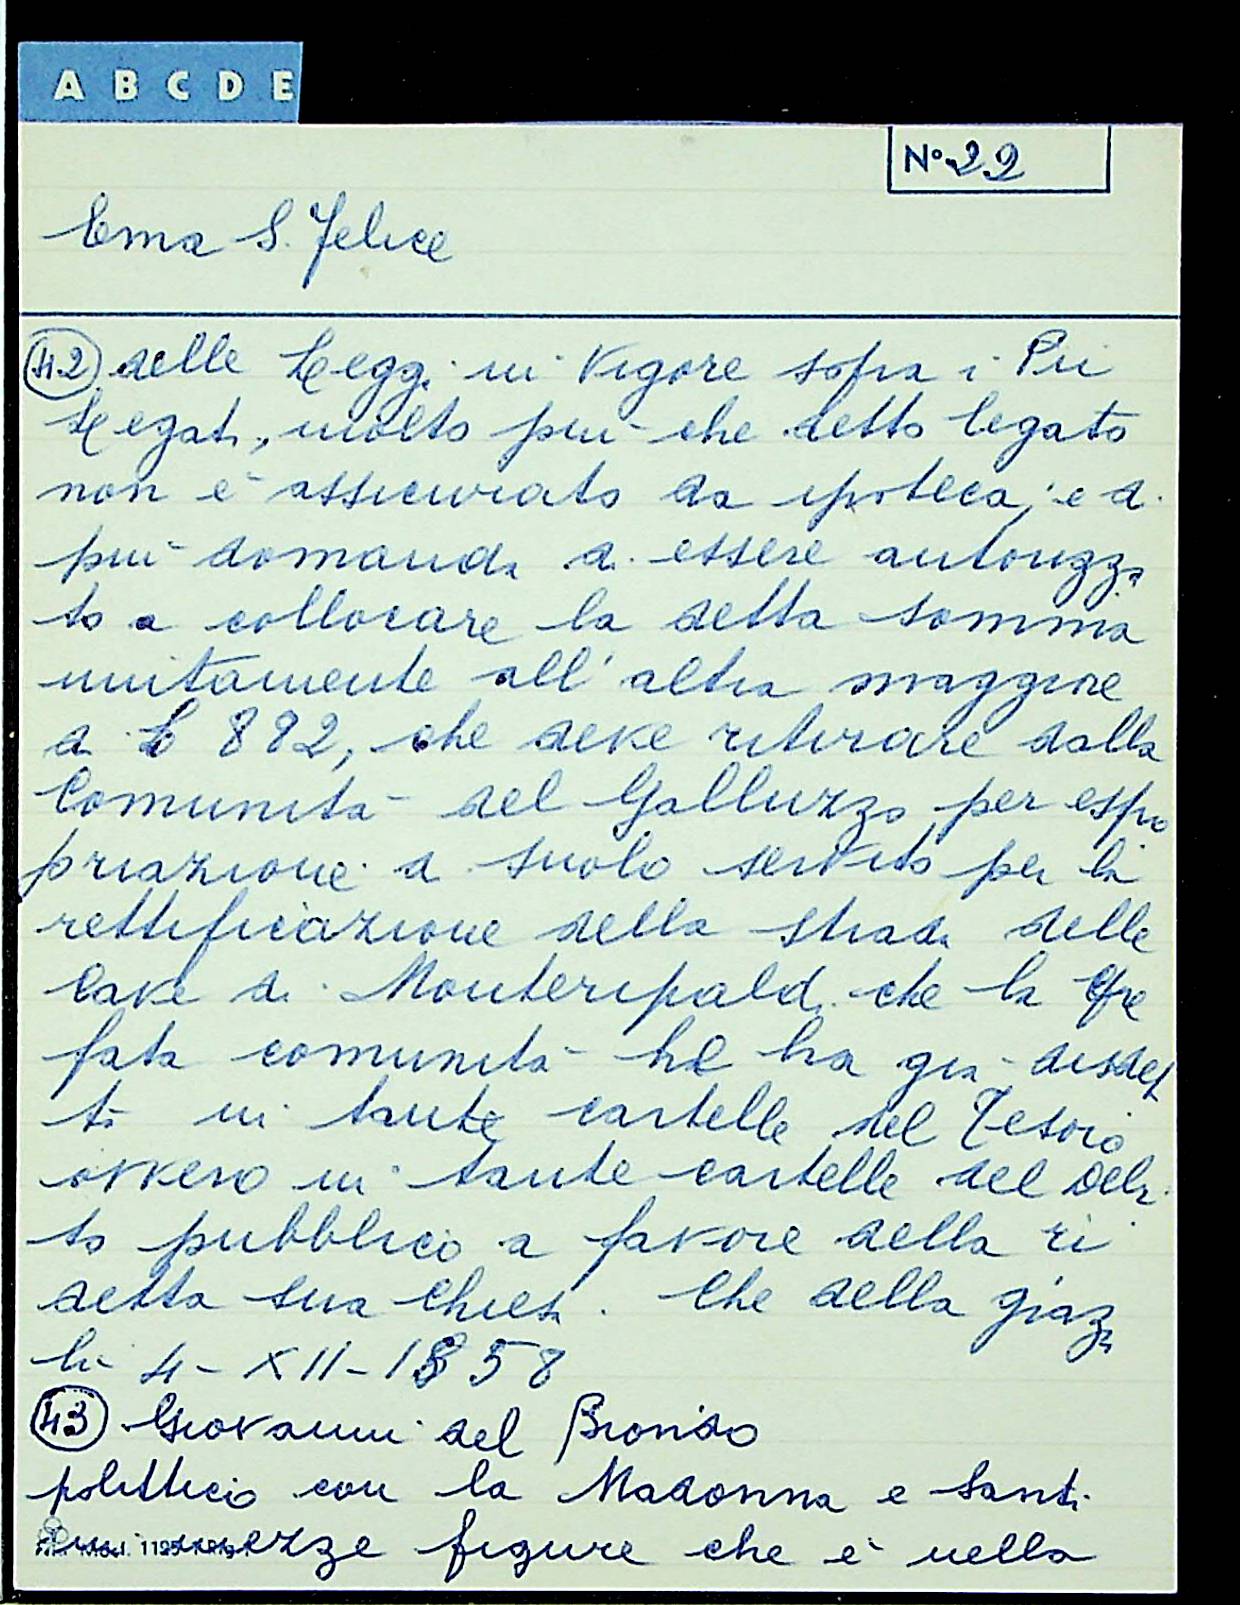 A B C D E
N° 22
Ema S. Felice
42 delle Leggi in Vigore sopra i Pii
Legati, molto più che detto legato
non è assicurato da ipoteca; e di
più domanda di essere autorizza
to a collocare la detta somma
unitamente all'altra maggiore
di £ 882, che deve ritirare dalla
Comunità del Galluzzo, per espro
priazione di suolo servito per la
rettificazione della strada delle
Cave di Monteripaldi che la pre
fata comunità ha già
ti in tante cartelle del Tesoro
ovvero in tante cartelle del Debi
to pubblico a favore della ri
detta sua Chiesa. Che della graz
li 4-XII-1858
43 Giovanni del Biondo
polittico con la Madonna e Santi
in mezze figure che è nella